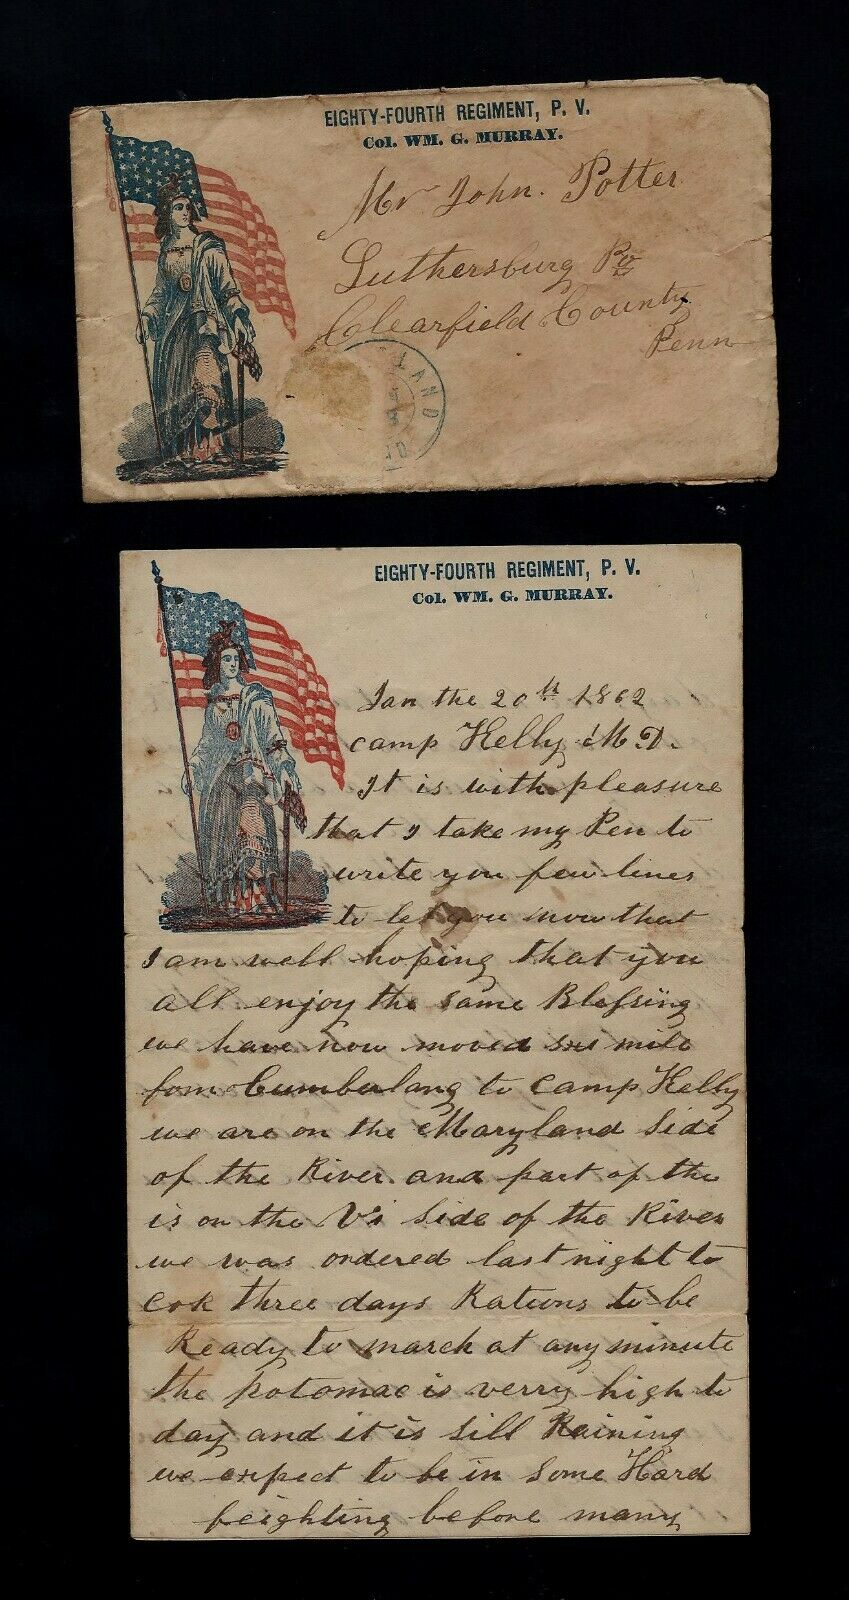 EIGHTY-FOURTH REGIMENT, P. V.
Col. WM. G. MURRAY.
Mr John. Potter
Luthersburg Po
Clearfield County
Penn
LAND
EIGHTY-FOURTH REGIMENT, P. V.
Col. WM. G. MURRAY.
Jan the 20th 1862
Camp Kelly M.D.
It is with pleasure
that I take my Pen to
write you few lines
to let you now that
I am well hoping that you
all enjoy the same Blessing
we have now moved mile
fom Cumberlang to Camp Kelly
we are on the Maryland Side
of the River and part of the
is on the Va Side of the River
we was ordered last night to
Cok three days Rations to be
Ready to march at any minute
the potomac is verry high to
day and it is sill Raining
we expect to be in Some Hard
feighting before many